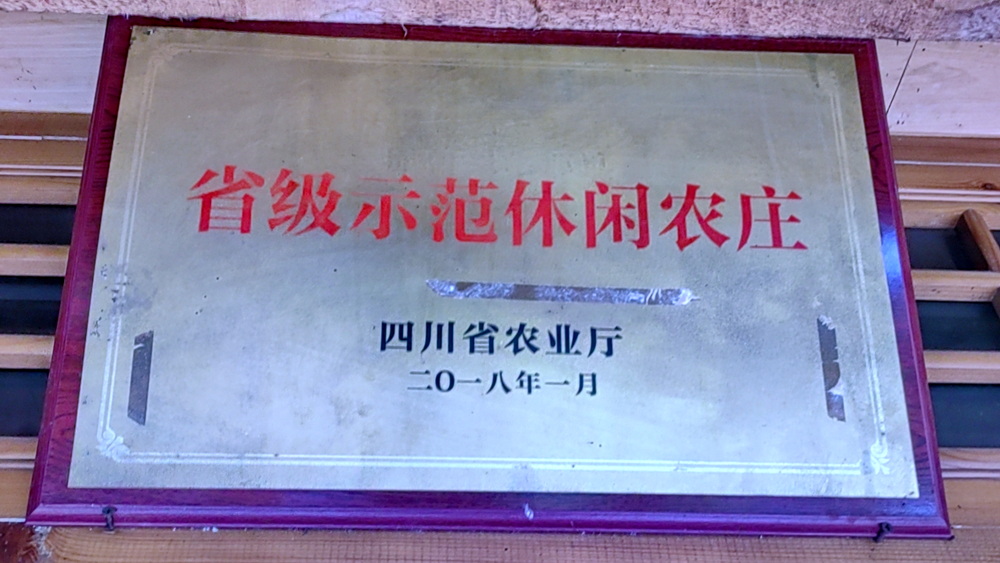 省级示范休闲农庄
四川省农业厅
二〇一八年一月